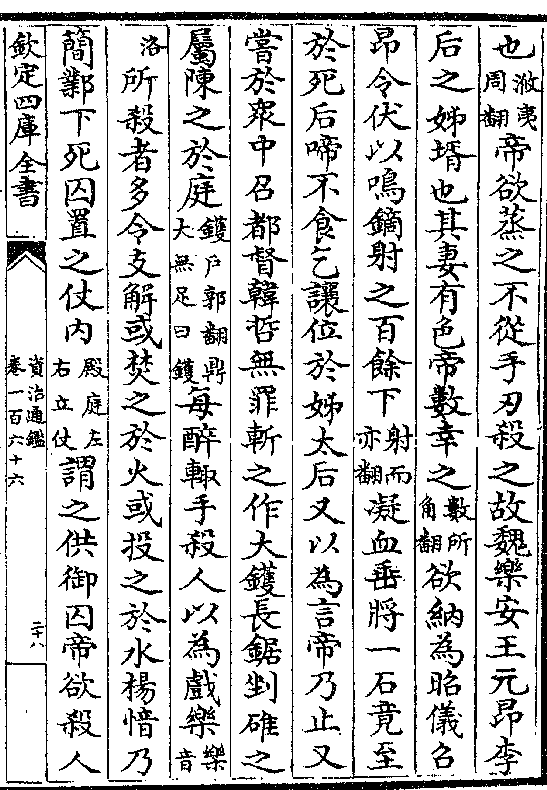 也㴽夷周翻帝欲蒸之不從手刃殺之故魏樂安王元昂李
后之姊壻也其妻有色帝數幸之數所角翻欲納為昭儀召
昂令伏以鳴鏑射之百餘下射而亦翻凝血垂將一石竟至
於死后啼不食乞讓位於姊太后又以為言帝乃止又
嘗於衆中召都督韓哲無罪斬之作大鑊長鋸剉碓之
屬陳之於庭鑊戶郭翻鼎大無足曰鑊每醉輒手殺人以為戲樂樂音
洛所殺者多令支解或焚之於火或投之於水楊愔乃
簡鄴下死囚置之仗內殿庭左右立仗謂之供御囚帝欲殺人
欽定四庫全書
資治通鑑
卷一百六十六
二十八